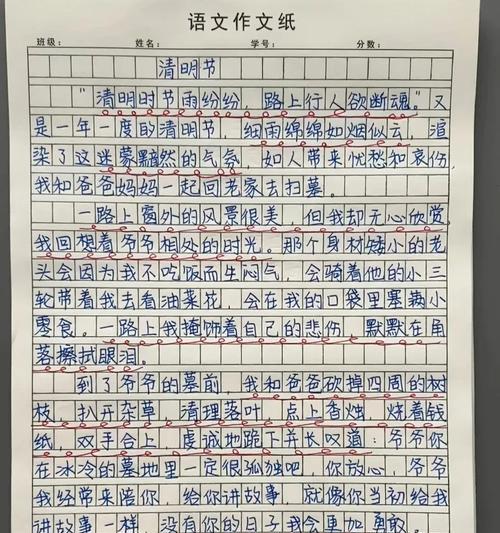 语文作文纸
班级： 姓名： 学号： 分数：
清明节
“清明时节雨纷纷，路上行人欲断魂。”又
是一年一度的清明节，细雨绵绵如烟似云，渲
染了这迷蒙黯然的气氛，如人带来忧愁和哀伤，
我和爸爸妈妈一起回老家去扫墓。
一路上窗外的风景很美，但我却无心欣赏，
我回想着爷爷相处的时光。那个身材矮小的老
头会因为我不吃饭而生闷气，会骑着他的小三
轮带着我去看油菜花，会在我的口袋里塞满小
零食。一路上我掩饰着自己的悲伤，默默在角
落擦拭眼泪。
到了爷爷的墓前，我和爸爸砍掉四周的树
枝，扒开杂草，清理落叶，点上香烛，烧着钱
纸，双手合上，虔诚地跪下并长叹道：爷爷你
在冰冷的墓地里一定很孤独吧，你放心，爷爷
我经常来陪你，给你讲故事，就像你当初给我
讲故事一样，没有你的日子我会更加勇敢。